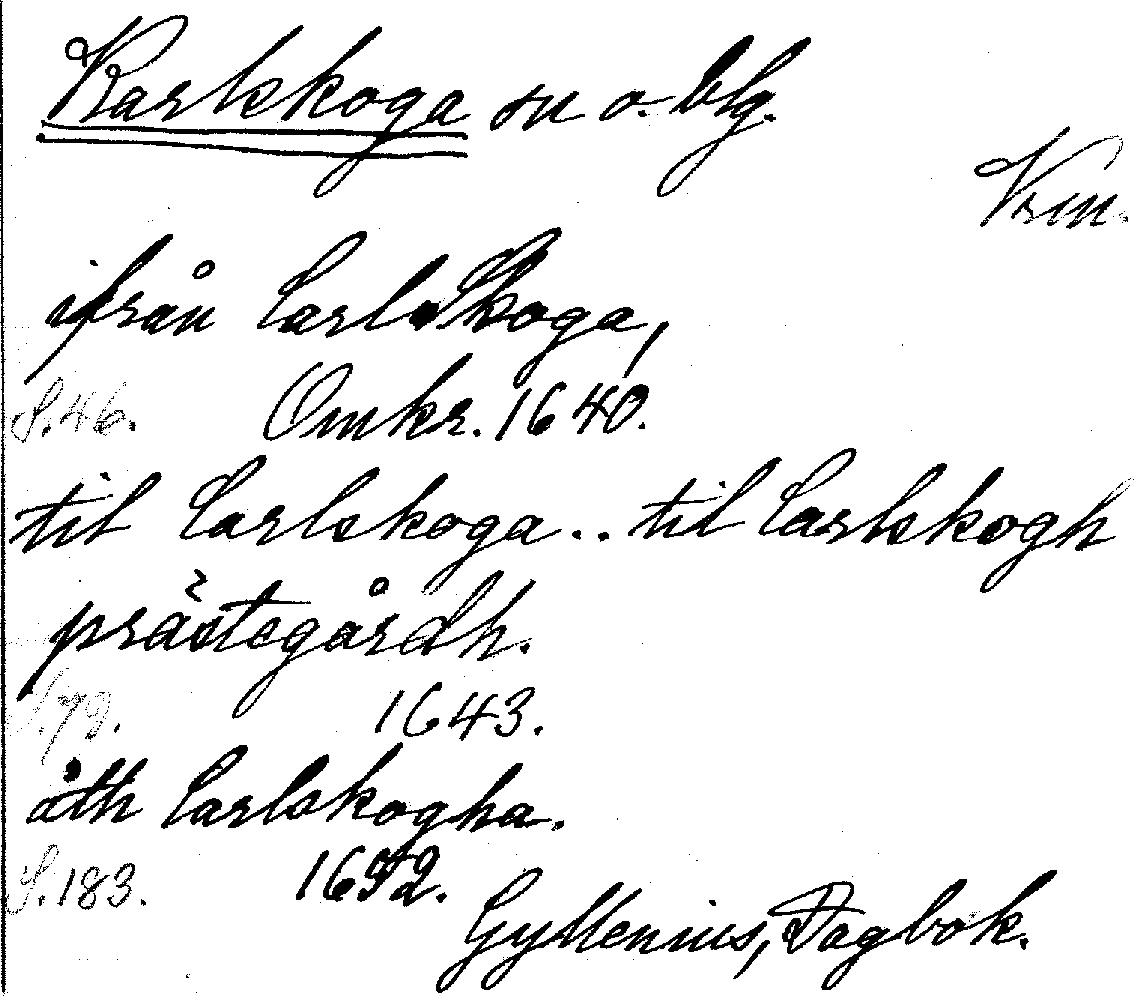 Karlskoga sn o. blg.
Vrm.
ifrån Carlskoga,
S. 46. Omkr. 1640.
til Carlskoga .. til Carlskogh
prästegårdh.
S. 79. 1643.
åth Carlskogha.
S. 183. 1652.
Gyllenius, Dagbok.